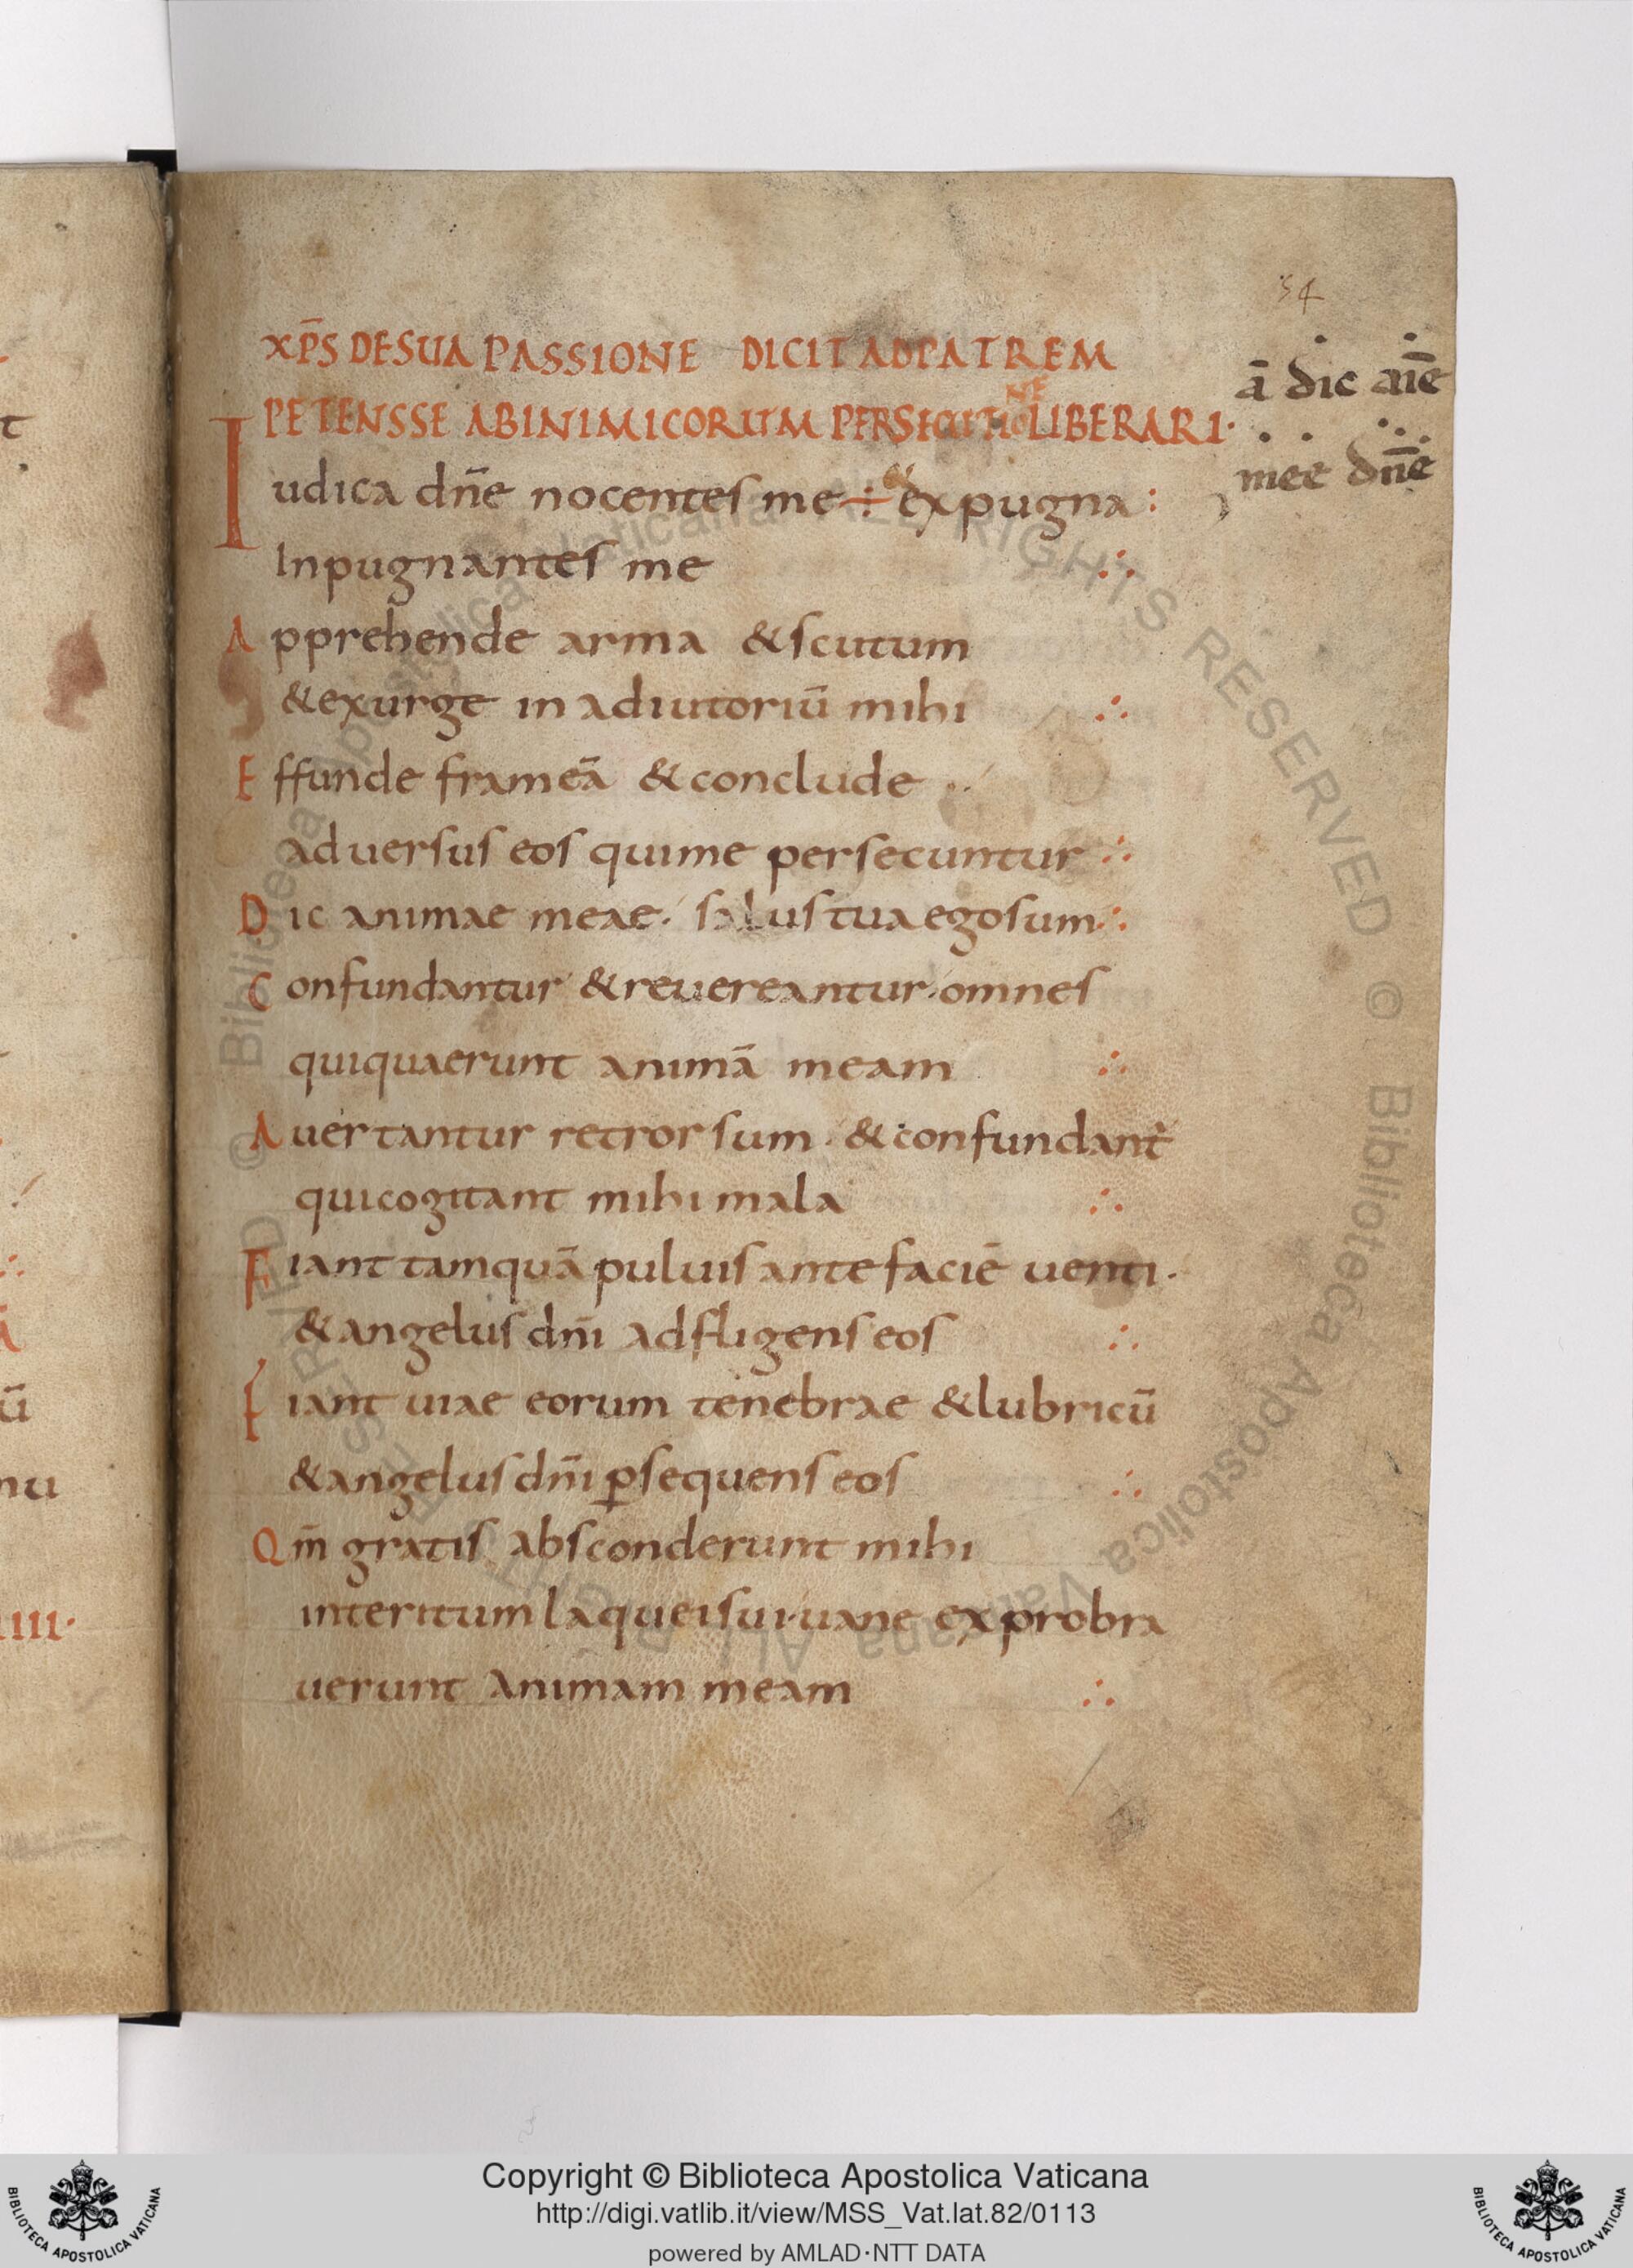 54
XP̄S DESUA PASSIONE DICIT ADPATREM
PETENSSE ABINIMICORUM PERSECUTIONE LIBERARI·
ā dic anē
mee dn̄e
Iudica dn̄e nocentes me ÷ expugna :
Inpugnantes me ∴
Apprehende arma & scutum
& exurge in adiutoriū mihi ∴
Effunde frameā & conclude
aduersus eos quime persecuntur ∴
Dic animae meae· salus tua egosum ∴
Confundantur & reuereantur omnes
quiquaerunt animā meam ∴
Auertantur retrorsum · & confundant
quicogitant mihi mala ∴
Fiant tamquā puluis ante faciē uenti ·
& angelus dn̄i adfligens eos ∴
Fiant uiae eorum tenebrae & lubricū
& angelus dn̄i ꝑsequens eos ∴
Qm̄ gratis absconderunt mihi
interitum laqueisui· uane exprobra
uerunt animam meam ∴
t
ū
nu
IIII·
© Biblioteca Apostolica Vaticana ALL RIGHTS RESERVED © Biblioteca Apostolica Vaticana ALL RIGHTS RESERVED
Copyright © Biblioteca Apostolica Vaticana
http://digi.vatlib.it/view/MSS_Vat.lat.82/0113
powered by AMLAD·NTT DATA
BIBLIOTECA APOSTOLICA VATICANA
BIBLIOTECA APOSTOLICA VATICANA